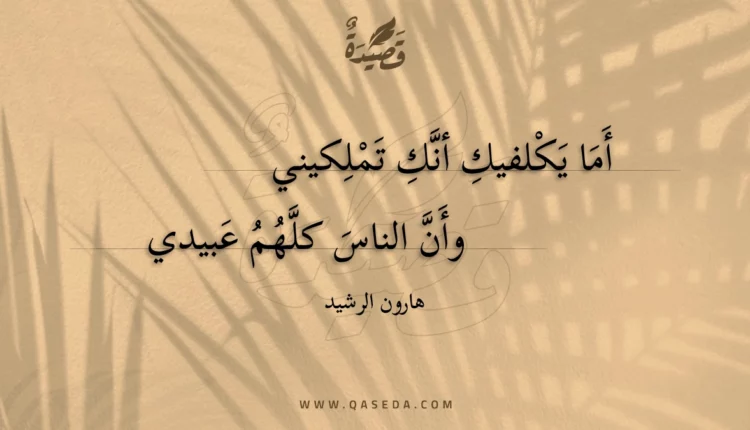 قَصِيْدَةٌ
أَمَا يَكْلفيكِ أنَّكِ تَمْلِكيني
وأَنَّ الناسَ كلَّهُمُ عَبيدي
هارون الرشيد
WWW.QASEDA.COM